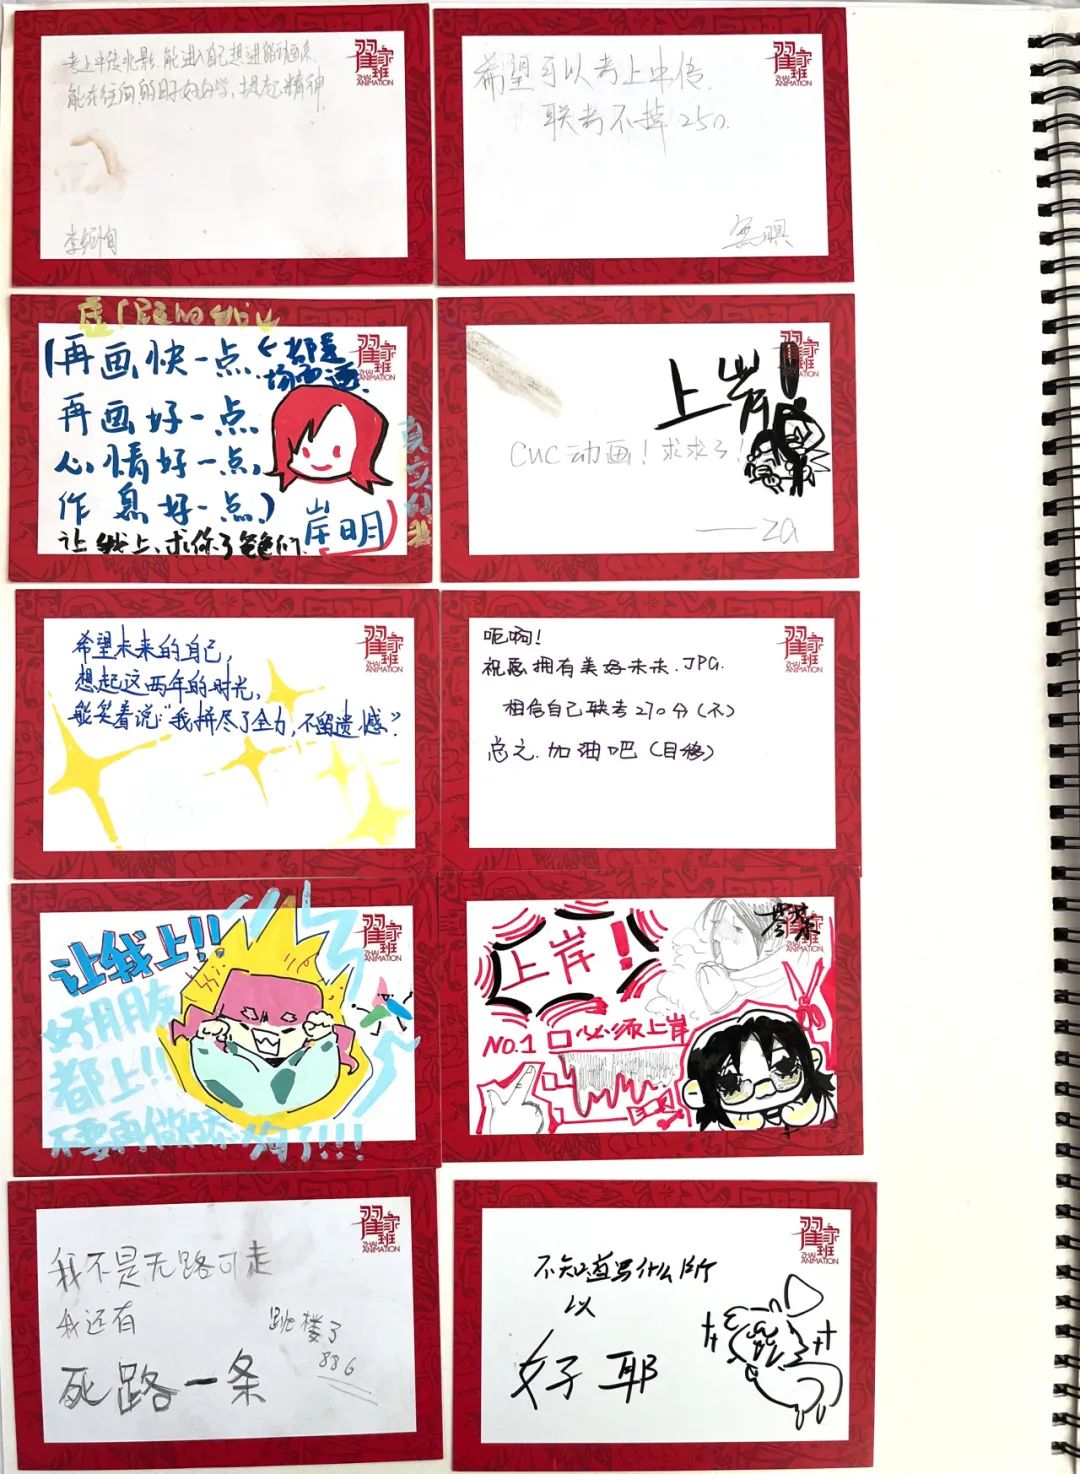 考上中传北影、能进入自己想进的动画系
能在往间的日子好好学,提起精神
翟家班
ZHAI
ANIMATION
希望可以考上中传.
联考不掉250.
翟家班
ZHAI
ANIMATION
虚假的
(再画快一点
<都是
场面话.
再画好一点
心情好一点,
作息好一点)
岸明
真实的我
让我上、求你了爸爸们.
翟家班
ZHAI
ANIMATION
上岸!
CUC动画!求求了!
——za
翟家班
ZHAI
ANIMATION
希望未来的自己,
想起这两年的时光,
能笑着说:“我拼尽了全力,不留遗憾”
翟家班
ZHAI
ANIMATION
呃啊!
祝愿拥有美好未来.JPG.
相信自己联考270分(不)
总之.加油吧(目移)
翟家班
ZHAI
ANIMATION
让我上!!
好朋友
都上!!
不要再做了!!!
翟家班
ZHAI
ANIMATION
上岸!
NO.1 必须上岸
翟家班
ZHAI
ANIMATION
我不是无路可走
我还有
跳楼了
886
死路一条
翟家班
ZHAI
ANIMATION
不知道写什么所
以
好耶
翟家班
ZHAI
ANIMATION